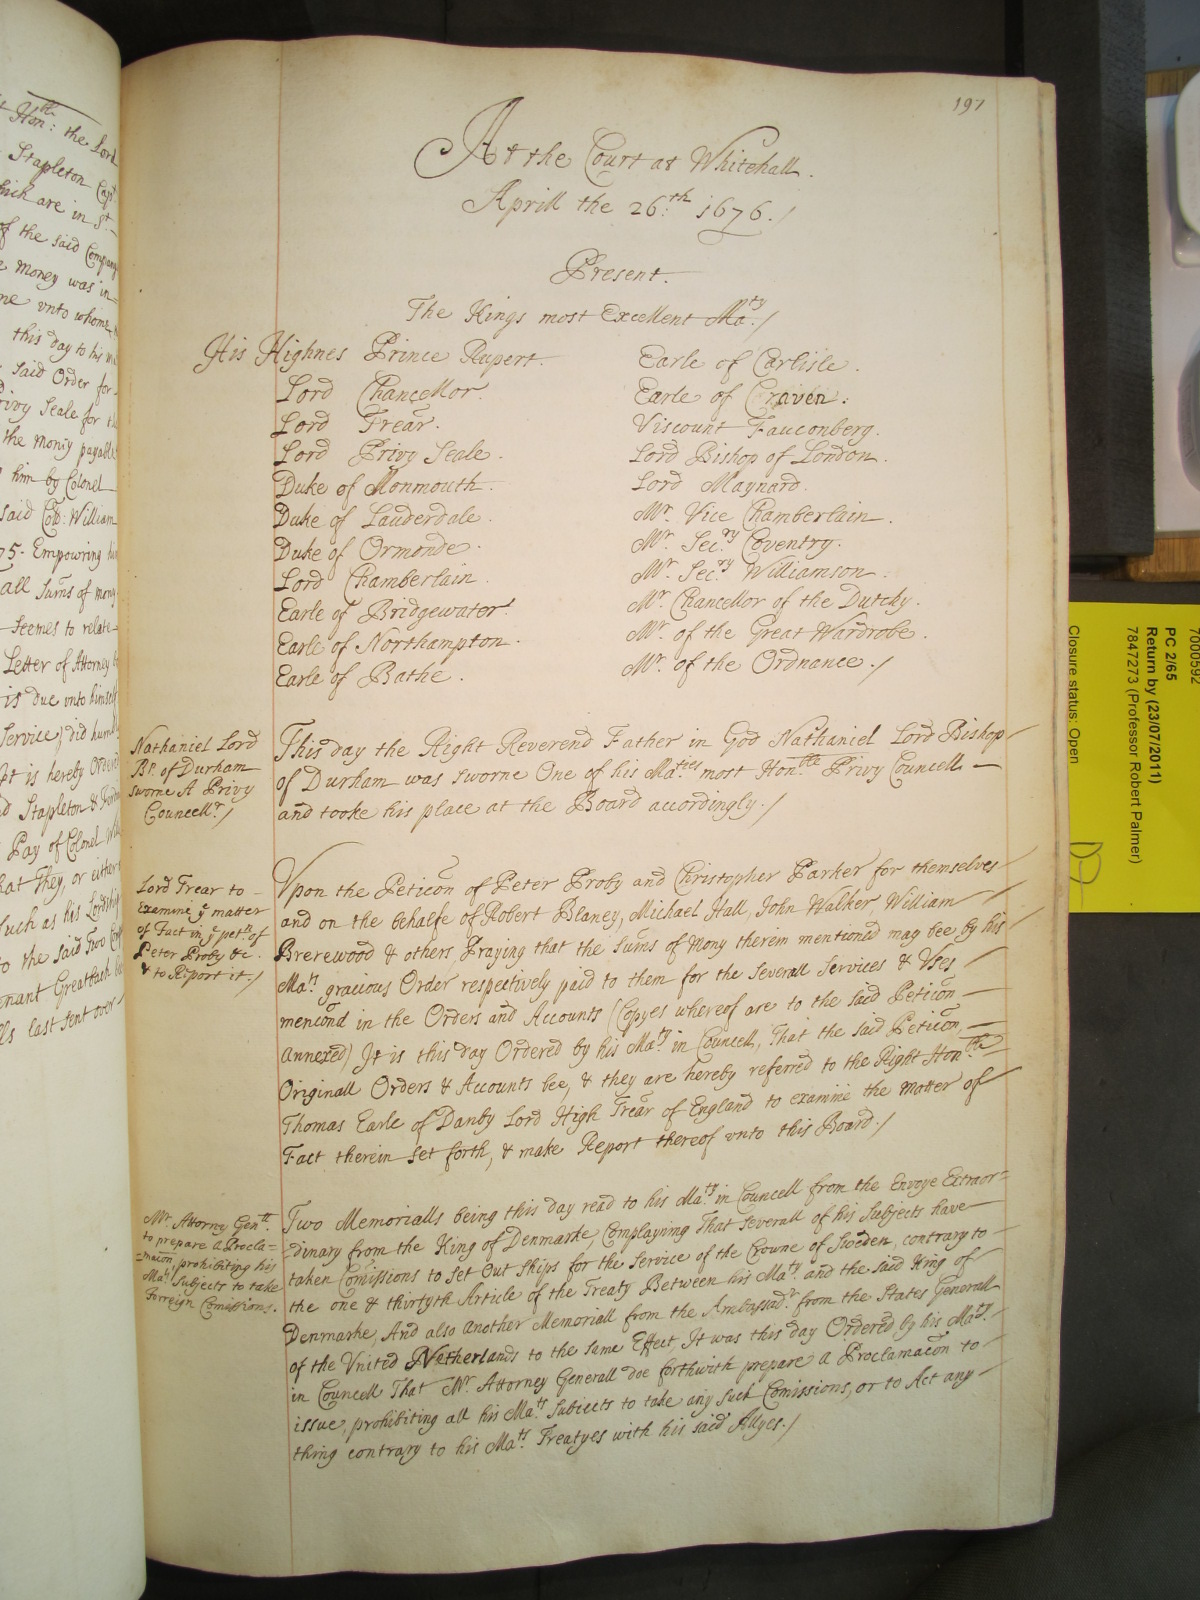 197
At the Court at Whitehall.
Aprill the 26th. 1676./
Present.
The Kings most Excellent Maty./
His Highnes Prince Rupert.
Lord Chancellor.
Lord Trear̄.
Lord Privy Seale.
Duke of Monmouth.
Duke of Lauderdale.
Duke of Ormonde.
Lord Chamberlain.
Earle of Bridgewater.
Earle of Northampton.
Earle of Bathe.
Earle of Carlisle.
Earle of Craven.
Viscount Fauconberg.
Lord Bishop of London.
Lord Maynard.
Mr. Vice Chamberlain.
Mr. Secry Coventry.
Mr. Secry Williamson.
Mr. Chancellor of the Dutchy.
Mr. of the Great Wardrobe.
Mr. of the Ordnance./
Nathaniel Lord
Bp. of Durham
sworne A Privy
Councellr./
This day the Right Reverend Father in God Nathaniel Lord Bishop
of Durham was sworne One of his Maties most Honble Privy Councell
and tooke his place at the Board accordingly./
Lord Trear to
Examine ye matter
of Fact in ye petn of
Peter Proby &c.
& to Report it./
Vpon the Peticōn of Peter Proby and Christopher Parker for themselves
and on the behalfe of Robert Blaney, Michael Hall, John Walker William
Brerewood & others, Praying that the Sum̄s of Mony therein mentioned may bee by his
Mats gracious Order respectively paid to them for the Severall Services & Vses
mencōnd in the Orders and Accounts (Copyes whereof are to the said Peticōn
annexed) It is this day Ordered by his Maty in Councell, That the said Peticōn,
Originall Orders & Accounts bee, & they are hereby referred to the Right Honble
Thomas Earle of Danby Lord High Trear̄ of England to examine the Matter of
Fact therein Set forth, & make Report thereof vnto this Board./
Mr. Attorny Genll.
to prepare a Procla=
=macōn, prohibiting his
Mats Subjects to take
Forreign Com̄issions.
Two Memorialls being this day read to his Maty in Councell from the Envoye Extraor=
dinary from the King of Denmarke, Complayning That severall of his Subjects have
taken Com̄issions to Set Out Ships for the Service of the Crowne of Sweden, contrary to
the one & thirtyth Article of the Treaty Between his Maty and the said King of
Denmarke, And also another Memoriall from the Ambassadr. from the States Generall
of the Vnited Netherlands to the same Effect, It was this day Ordered by his Maty.
in Councell That Mr. Attorney Generall doe forthwith prepare a Proclamacōn to
issue, prohibiting all his Mats Subjects to take any such Com̄issions, or to Act any
thing contrary to his Mats. Treatyes with his said Allyes./
the Lord
Stapleton
which are in
of the said Company
money was in=
vnto whome
this day to his
said Order for
Privy Seale for
the moniy payable
him by Colonel
said William
75. Empowring
all Sum̄s of mony
seemes to relate
Letter of Attorney
is due vnto himself
Service) did
It is hereby
Stapleton &
Pay of Colonel
That They, or either
such as his Lordship
to the said Two
Greatbach
last sent over
7000592
PC 2/65
Return by (23/07/2011)
7847273 (Professor Robert Palmer)
Closure status: Open